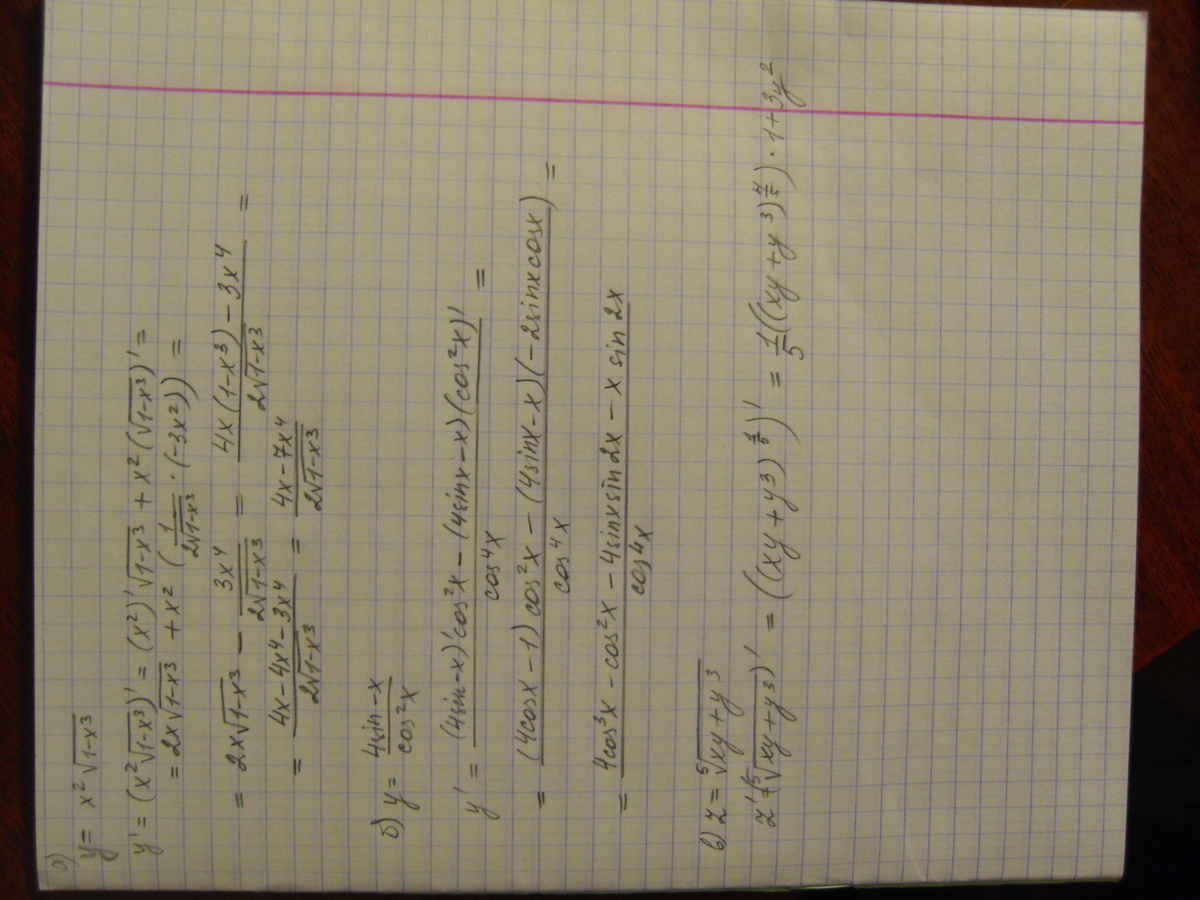 а)
y = x²√(1-x³)
y' = (x²√(1-x³))' = (x²)'√(1-x³) + x²(√(1-x³))' =
= 2x√(1-x³) + x² (1/(2√(1-x³)) · (-3x²)) =
= 2x√(1-x³) - 3x⁴/(2√(1-x³)) = (4x(1-x³) - 3x⁴)/(2√(1-x³)) =
= (4x - 4x⁴ - 3x⁴)/(2√(1-x³)) = (4x - 7x⁴)/(2√(1-x³))
б) y = (4sin-x)/(cos²x)
y' = ((4sin-x)'cos²x - (4sinx-x)(cos²x)')/(cos⁴x) =
= ((4cosx-1)cos²x - (4sinx-x)(-2sinxcosx))/(cos⁴x) =
= (4cos³x - cos²x - 4sinxsin2x - x sin2x)/(cos⁴x)
в) z = ⁵√(xy+y³)
z' = (⁵√(xy+y³))' = ((xy+y³)^(1/5))' = 1/5((xy+y³)^(4/5)) · 1+3y²